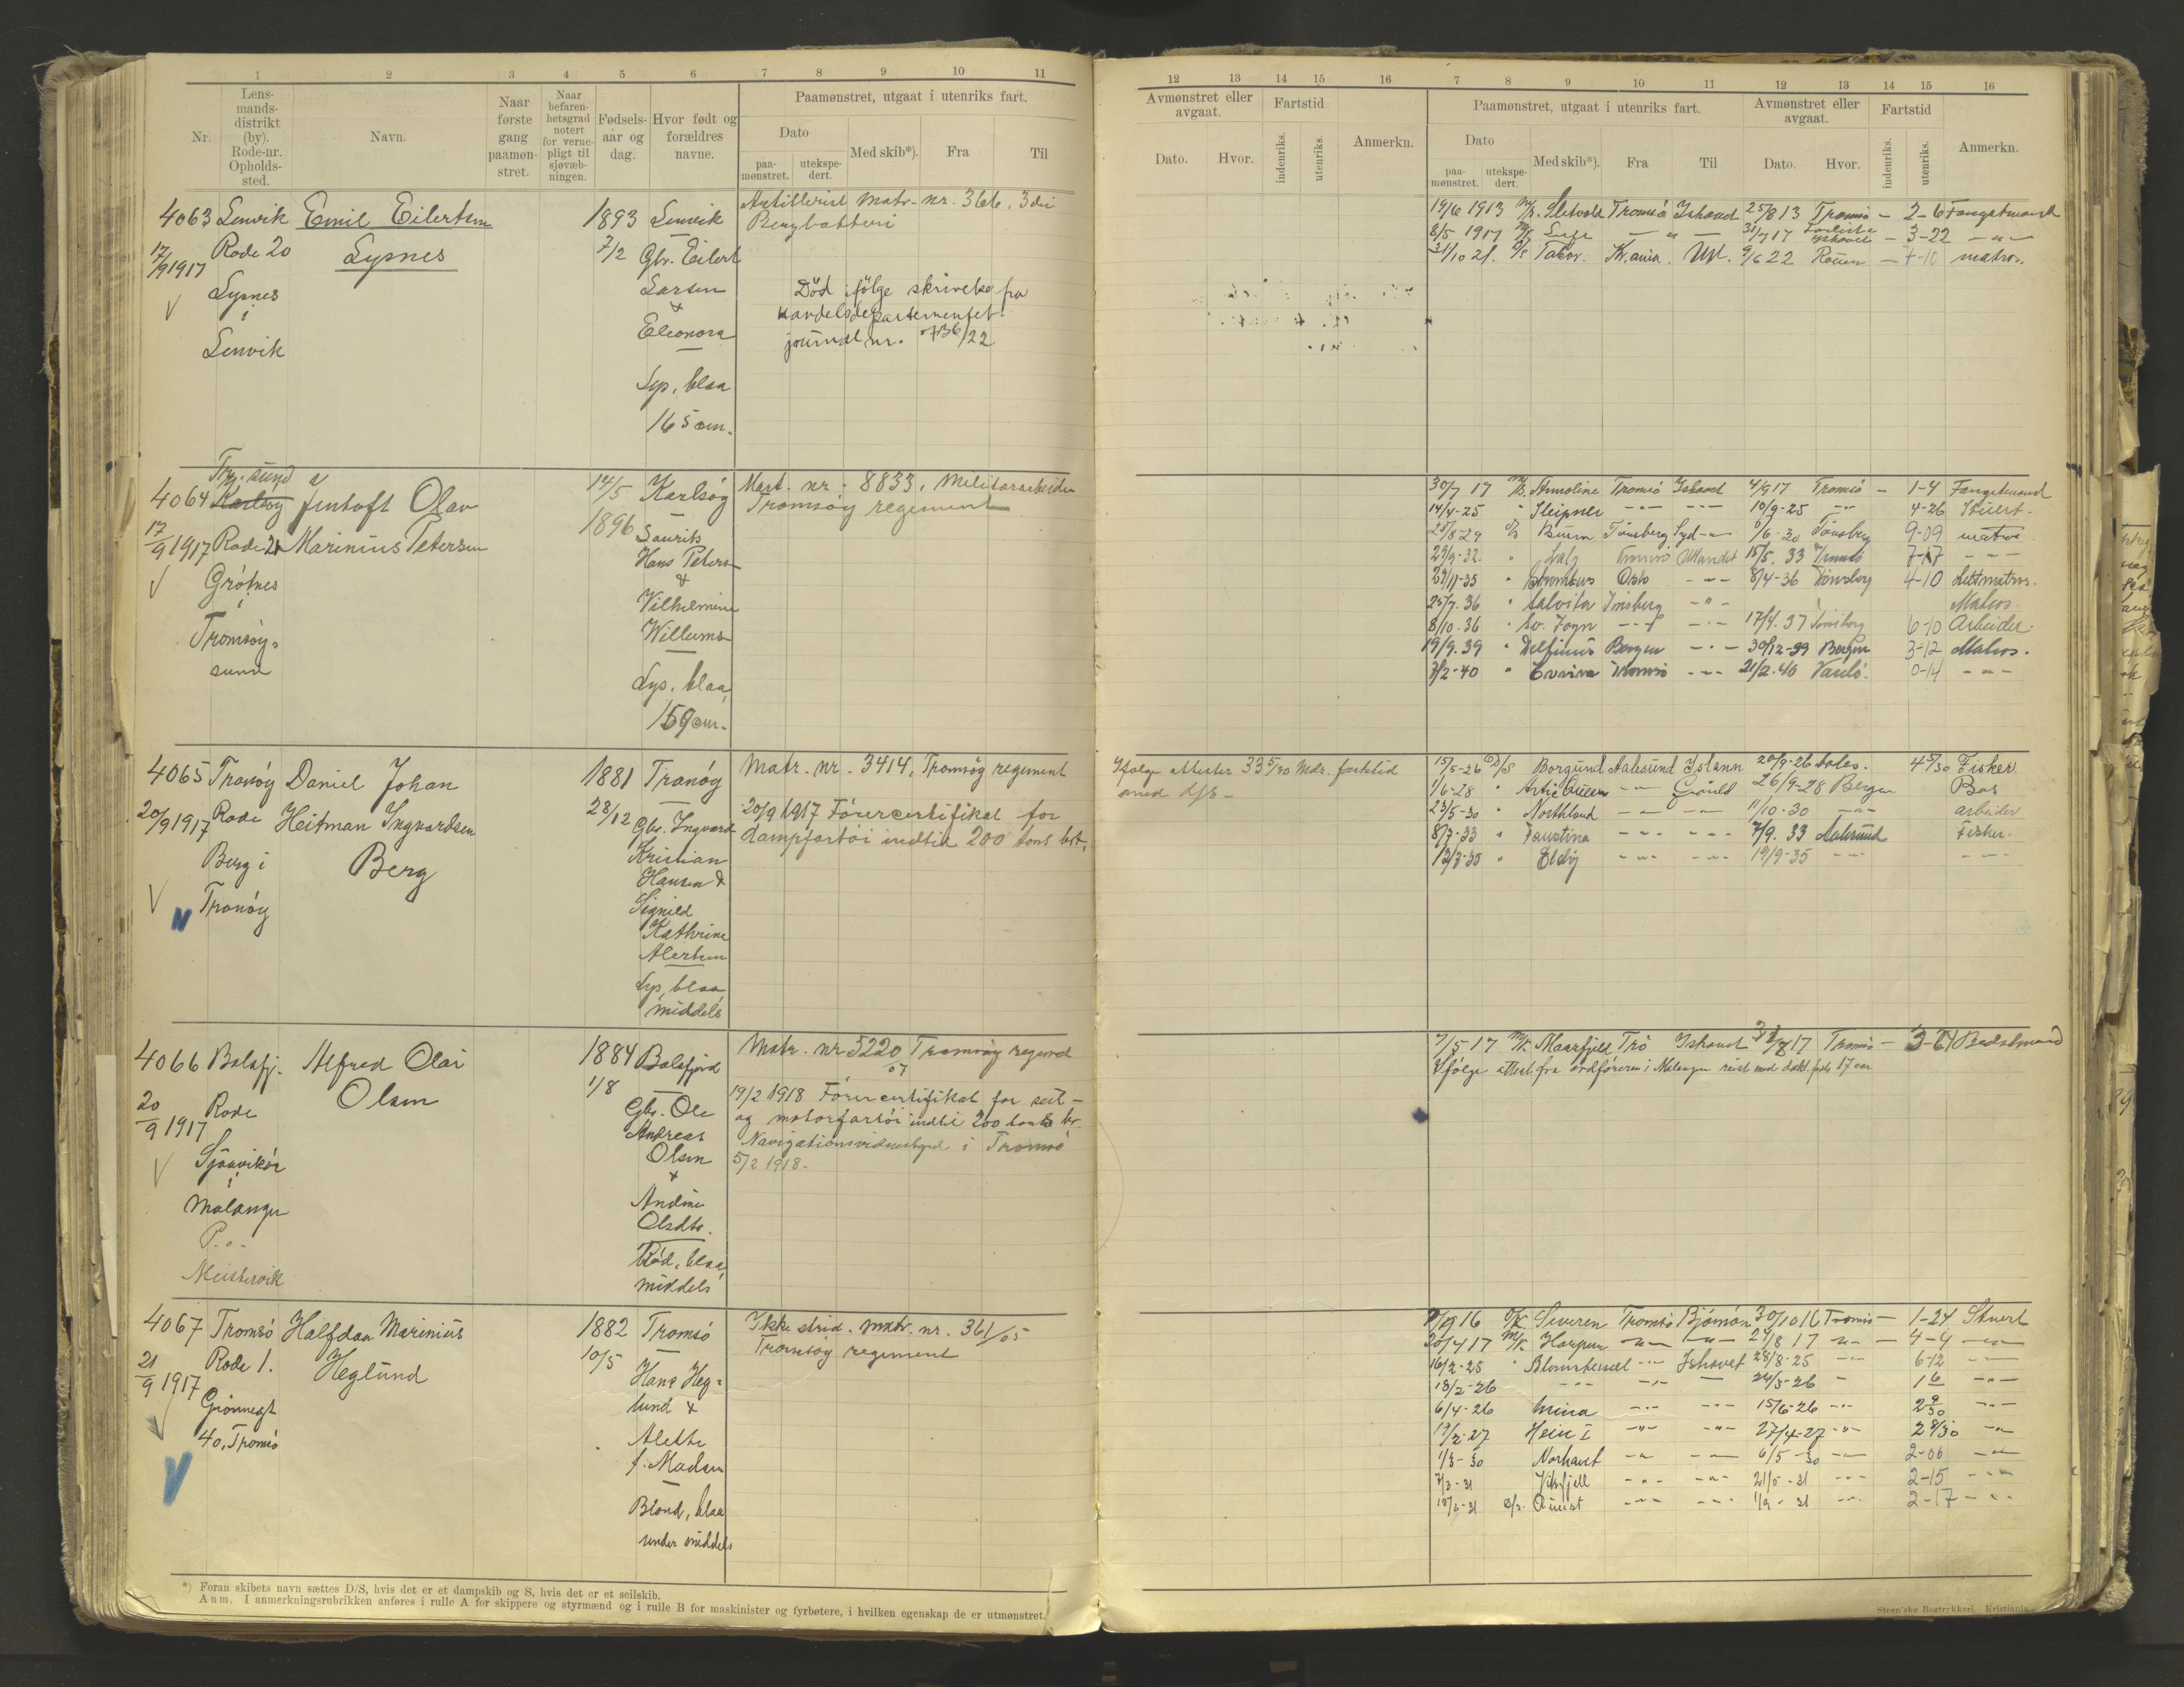 1 2 3 4 5 6 7 8 9 10 11
Nr.
Lens-
mands-
distrikt
(by).
Rode-nr.
Opholds-
sted.
Navn.
Naar
første
gang
paamøn-
stret.
Naar
befaren-
hetsgrad
notert
for verne-
pligt til
sjøvæb-
ningen.
Fødsels-
aar og
dag.
Hvor født og
forældres
navne.
Paamønstret, utgaat i utenriks fart.
Dato
paa-
mønstret.
utekspe-
dert.
Med skib*).
Fra
Til
4063 Lenvik Emil Eilertsen
17/9 1917 Rode 20 Lysnes
Lysnes
i
Lenvik
1893
7/2
Lenvik
Gbr. Eilert
Larsen
&
Eleonora
Lys, blaa
165 cm.
Artillerist Matr. nr. 366, 3die
Bergbatteri
Død ifølge skrivelse fra
Handelsdepartementet
journal nr. 7136/22
Tr. sund
4064 Karlsøy Jentoft Olav
17/9 1917 Rode 21 Marinius Petersen
Grøtnes
i
Tromsøy-
sund
14/5
1896
Karlsøy
Laurits
Hans Peters
&
Vilhelmine
Willums
Lys, blaa,
159 cm.
Mart. nr. 8833, Militærarbeider
Tromsøy regiment
4065 Tranøy Daniel Johan
20/9 1917 Rode Heitman Ingvardsen
Berg i Berg
Tranøy
1881
28/12
Tranøy
Gbr. Ingvard
Kristian
Hansen &
Signild
Kathrine
Alertsen
Lys, blaa
middels
Matr. nr. 3414, Tromsøy regiment
20/9 1917 Førercertifikat for
dampfartøi indtil 200 tons br.
4066 Balsfj. Alfred Olai
Olsen
20/9 1917 Rode
Sjåvikør
i
Malangen
P.a.
Meistervik
1884
1/8
Balsfjord
Gbr. Ole
Andreas
Olsen
&
Andine
Olsdtr.
Rød, blaa,
middels
Matr. nr 5220/07 Tromsøy regiment
19/2 1918 Førercertifikat for seil-
og motorfartøi indtil 200 tons br.
Navigationsvidnesbyrd i Tromsø
5/2 1918.
4067 Tromsø Halfdan Marinius
21/9 1917 Rode 1. Heglund
Grønnegt
40, Tromsø
1882
10/5
Tromsø
Hans Heg-
lund &
Alette
f. Madsen
Blond, blaa
under middels
Ikke strid. Matr. nr. 361/05
Tromsøy regiment
*) Foran skibets navn sættes D/S, hvis det er et dampskib og S, hvis det er et seilskib.
Anm. I anmerkningsrubrikken anføres i rulle A for skippere og styrmænd og i rulle B for maskinister og fyrbøtere, i hvilken egenskap de er utmønstret.
12 13 14 15 16 7 8 9 10 11 12 13 14 15 16
Avmønstret eller
avgaat.
Dato. Hvor.
Fartstid
indenriks.
utenriks.
Anmerkn.
Paamønstret, utgaat i utenriks fart.
Dato
paa-
mønstret.
utekspe-
dert.
Med skib*).
Fra
Til
Avmønstret eller
avgaat.
Dato. Hvor.
Fartstid
indenriks.
utenriks.
Anmerkn.
19/6 1913 M/K. Sletvold Tromsø Ishavet 25/8 13 Tromsø - 2-6 Fangstmand
8/5 1917 31/7 17 Forlist i Ishavet - 3-22 -"-
31/10 21. D/S Kr.ania. Utl. 9/6 22 Rouen - 7-10 matros.
30/7 17 M/K. Annoline Tromsø Ishavet 4/9 17 Tromsø - 1-4 Fangstmand
14/4-25 " Sleipner -"- -"- 10/9-25 -"- 4-26 Stuert.
Tønsberg Syd-"- 1/6-30 Tønsberg 9-09 matros
Tromsø Utlandet 15/5. 33 Tromsø 7-17 -"-
29/11-35 " Strombus Oslo -"- 8/4-36 Tønsberg 4-10 Lettmatros.
25/7. 36 " Salvita Tønsberg -"- Matros
8/10. 36 " Sv. Foyn -"- -"- 17/4. 37 Tønsberg 6-10 Arbeider.
19/9. 39 " Delfinus Bergen -"- 30/12-39 Bergen 3-12 Matros.
7/2-40 " Tromsø -"- 21/2-40 Vardø. 0-14 -"-
Ifølge attester 33 5/30 Mdr. fartstid
med d/s -
15/5-26 D/S Borgund Aalesund Island 20/9-26 Aales. 4 5/30 Fisker
1/6-28 " Artic Queen -"- Grønld 26/9-28 Bergen Bas
23/5-30 " Northland -"- -"- 11/10-30 -"- arbeider
8/7-33 " Faustina -"- -"- 7/9. 33 Aalesund Fisker.
13/7-35 " Eldøy -"- -"- 19/9-35 -"- -"-
7/5 17 M/K. Maarfjell Trø. Ishavet 31/8 17 Tromsø - 3-24 Baadsmand
Ifølge attest fra ordføreren i Malangen reist med dekk. farts. 17 aar
Severen Tromsø Bjørnøn 30/10 16 Tromsø - 1-24 Stuert
20/4 17 M/K. Harpun -"- -"- 24/8 17 -"- - 4-4 -"-
16/2-25 " Blomstersæl -"- Ishavet 28/8-25 -"- 6-12 -"-
18/2-26 -"- -"- - 24/3-26 - 1 6 -"-
6/4-26 Mina -"- -"- 15/6-26 -"- 2 9/30 -"-
19/2-27 Heim I -"- -"- 27/4-27 -"- 2 8/30 -"-
1/3-30 Norhavet -"- -"- 6/5-30 -"- 2-06 -"-
7/3-31 Isfjell -"- -"- 21/5-31 -"- 2-15 -"-
15/6-31 S/s. Quest -"- -"- 1/9-31 -"- 2-17 -"-
Steen'ske Bogtrykkeri. Kristiania.